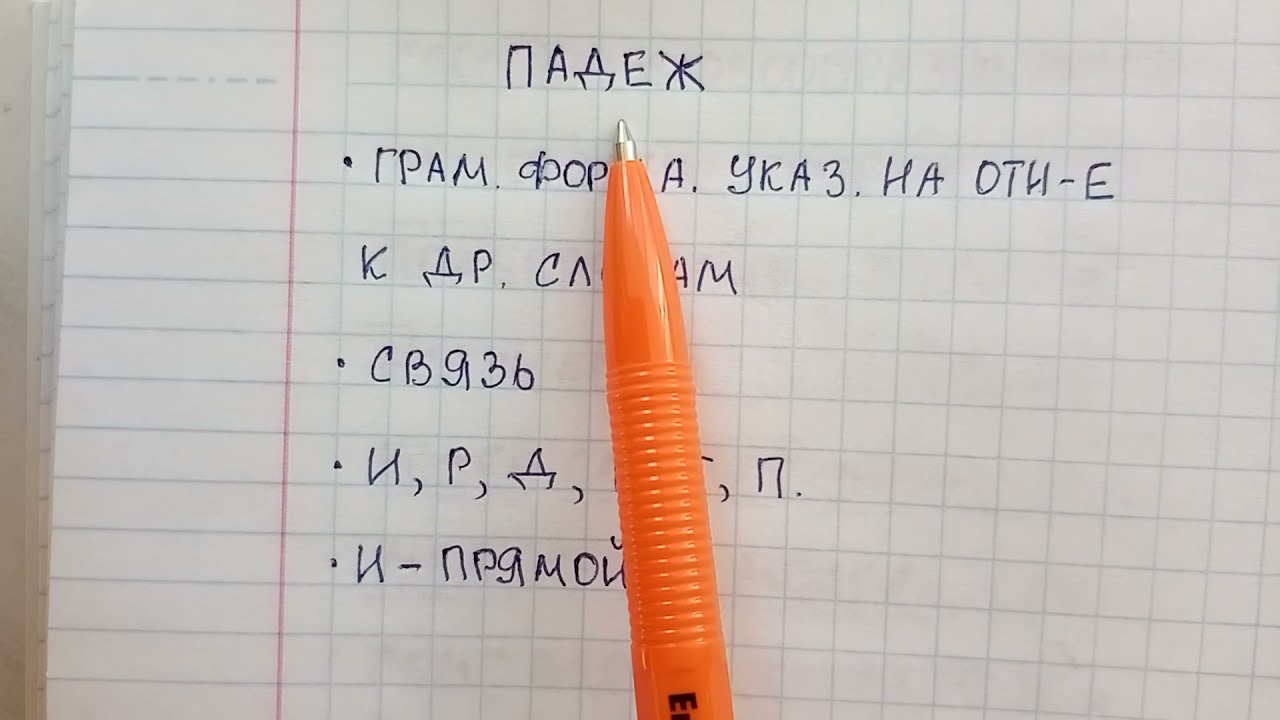 ПАДЕЖ
• ГРАМ. А. УКАЗ. НА ОТН-Е
К ДР.
• СВЯЗЬ
• И, Р, Д, , П.
• И - ПРЯМОЙ